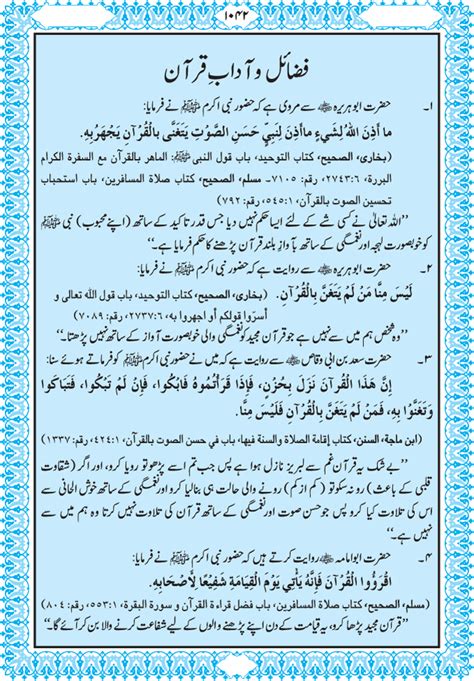 ۱۰۴۲
فضائل و آدابِ قرآن
۱۔ حضرت ابوہریرہ رضی اللہ عنہ سے مروی ہے کہ حضور نبی اکرم ﷺ نے فرمایا:
ما أَذِنَ اللهُ لِشَيءٍ ماأَذِنَ لِنَبِيٍّ حَسَنِ الصَّوْتِ يَتَغَنَّى بِالْقُرْآنِ يَجْهَرُ بِهِ.
(بخاری، الصحیح، کتاب التوحید، باب قول النبی ﷺ: الماهر بالقرآن مع السفرة الکرام
البررة، ۶:۲۷۴۳، رقم: ۷۱۰۵۔ مسلم، الصحیح، کتاب صلاة المسافرین، باب استحباب
تحسین الصوت بالقرآن، ۱:۵۴۵، رقم: ۷۹۲)
’’اللہ تعالیٰ نے کسی شے کے لئے ایسا حکم نہیں دیا جس قدر تاکید کے ساتھ (اپنے محبوب) نبی ﷺ
کو خوبصورت لہجہ اور نغمگی کے ساتھ بآوازِ بلند قرآن پڑھنے کا حکم فرمایا ہے۔‘‘
۲۔ حضرت ابوہریرہ رضی اللہ عنہ سے روایت ہے کہ حضور نبی اکرم ﷺ نے فرمایا:
لَيْسَ مِنَّا مَنْ لَمْ يَتَغَنَّ بِالْقُرْآنِ. (بخاری، الصحیح، کتاب التوحید، باب قول الله تعالی و
أسرّوا قولکم أو اجهروا به، ۶:۲۷۳۷، رقم: ۷۰۸۹)
’’وہ شخص ہم میں سے نہیں ہے جو قرآن مجید کو نغمگی والی خوبصورت آواز کے ساتھ نہیں پڑھتا۔‘‘
۳۔ حضرت سعد بن ابی وقاص رضی اللہ عنہ سے روایت ہے کہ میں نے حضور نبی اکرم ﷺ کو فرماتے ہوئے سنا:
إِنَّ هَذَا الْقُرْآنَ نَزَلَ بِحُزْنٍ، فَإِذَا قَرَأْتُمُوهُ فَابْكُوا، فَإِنْ لَمْ تَبْكُوا، فَتَبَاكَوا
وَتَغَنَّوْا بِهِ، فَمَنْ لَمْ يَتَغَنَّ بِالْقُرْآنِ فَلَيْسَ مِنَّا.
(ابن ماجة، السنن، کتاب إقامة الصلاة والسنة فیها، باب في حسن الصوت بالقرآن، ۱:۴۲۴، رقم: ۱۳۳۷)
’’بے شک یہ قرآن غم سے لبریز نازل ہوا ہے پس جب تم اسے پڑھو تو رویا کرو، اور اگر (شقاوت
قلبی کے باعث) رو نہ سکو تو (کم از کم) رونے والی حالت ہی بنا لیا کرو اور نغمگی کے ساتھ خوش الحانی سے
اس کی تلاوت کیا کرو پس جو حسن صوت اور نغمگی کے ساتھ قرآن کی تلاوت نہیں کرتا وہ ہم میں سے
نہیں ہے۔‘‘
۴۔ حضرت ابوامامہ رضی اللہ عنہ روایت کرتے ہیں کہ حضور نبی اکرم ﷺ نے فرمایا:
اقْرَؤُوا الْقُرْآنَ فَإِنَّهُ يَأْتِي يَوْمَ الْقِيَامَةِ شَفِيعًا لِأَصْحَابِهِ.
(مسلم، الصحیح، کتاب صلاة المسافرین، باب فضل قراءة القرآن و سورة البقرة، ۱:۵۵۳، رقم: ۸۰۴)
’’قرآن مجید پڑھا کرو، یہ قیامت کے دن اپنے پڑھنے والوں کے لیے شفاعت کرنے والا بن کر آئے گا۔‘‘